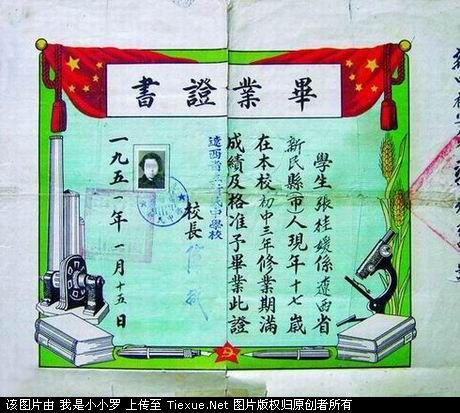 畢業證書
學生張桂媛係遼西省
新民縣(市)人現年十七歲
在本校初中三年修業期滿
成績及格准予畢業此證
遼西省立新民中學校
校長
一九五一年一月十五日
该图片由 我是小小罗 上传至 Tiexue.Net 图片版权归原创者所有